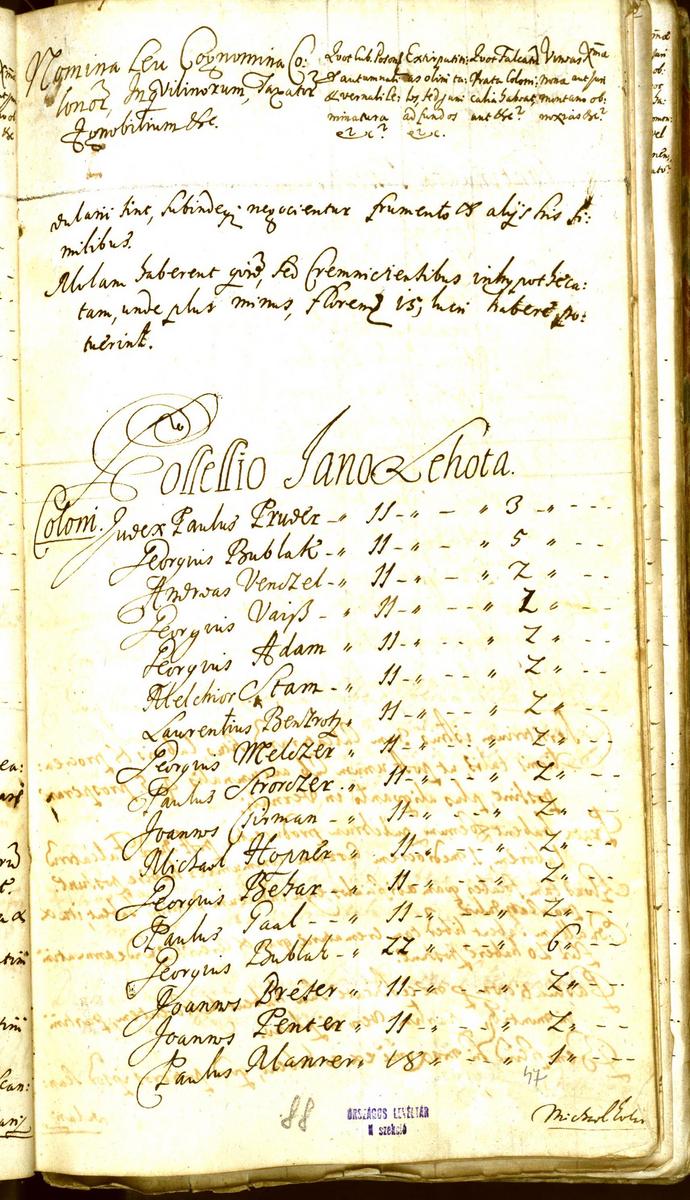 Nomina Seu Cognomina Co:
lonor, Inqvilinorum, Taxator
Ignobilium &c.
Qvot sub Poson
& autumnali
& vernali se:
minatura
&c
Extirpatin:
as olim ta:
les, sed jam
ad fundos
&c.
Qvot Falcan
Prata Coloni:
calia habeat
aut &c
Vineas
nona aut juri
montano ob:
noxias &c
dulani sint, subindeq negocientur frumento & alijs his si:
milibus.
Molam haberent qvid, sed Cremniciensibus inhypotheca:
tam, unde plus minus, floren 15, lucri habere po:
tuerint.
Possessio Jano Lehota.
Coloni. Judex Paulus Pruder - " 11 - " - " 3 " - - -
Georgius Bublak - " 11 - " - " 5 " - -
Andreas Venczel - " 11 - " - " 2 " - -
Georgius Vaiß - " 11 - " - - " 2 " - -
Georgius Adam " 11 - " - - " 2 " - -
Melchior Stam - " 11 - " - - " 2 " - -
Laurentius Benkrotz " 11 - " - - " 2 " - -
Georgius Melczer " 11 - " - - " 2 " - -
Paulus Strorczer " 11 - " - - " 2 " - -
Joannes Girman - " 11 - " - - " 2 " - -
Michael Hopner " 11 - " - - " 2 " - -
Georgius Behar " 11 - " - - " 2 " - -
Paulus Gaal - - " 11 - " - - " 2 " - -
Georgius Bublak - " 22 " - - " 6 " - -
Joannes Bréter " 11 - " - - " 2 " - -
Joannes Penter " 11 - " - - " 2 " - -
Paulus Manrer " 18 - " - - " 1 " - - -
47
88
ORSZÁGOS LEVÉLTÁR
N szekció
Michael